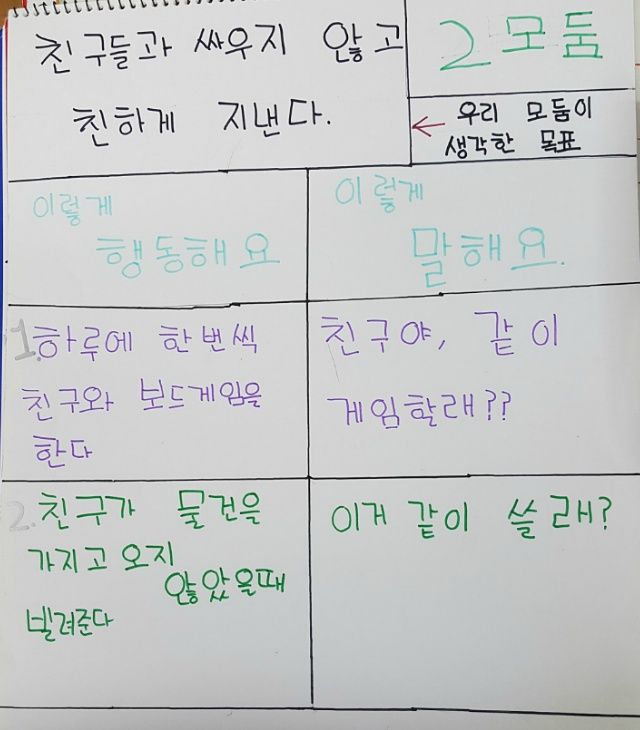 친구들과 싸우지 않고
친하게 지낸다.
2모둠
← 우리 모둠이
생각한 목표
이렇게
행동해요
이렇게
말해요.
1.하루에 한번씩
친구와 보드게임을
한다
친구야, 같이
게임할래??
2.친구가 물건을
가지고 오지
않았을때
빌려준다
이거 같이 쓸래?